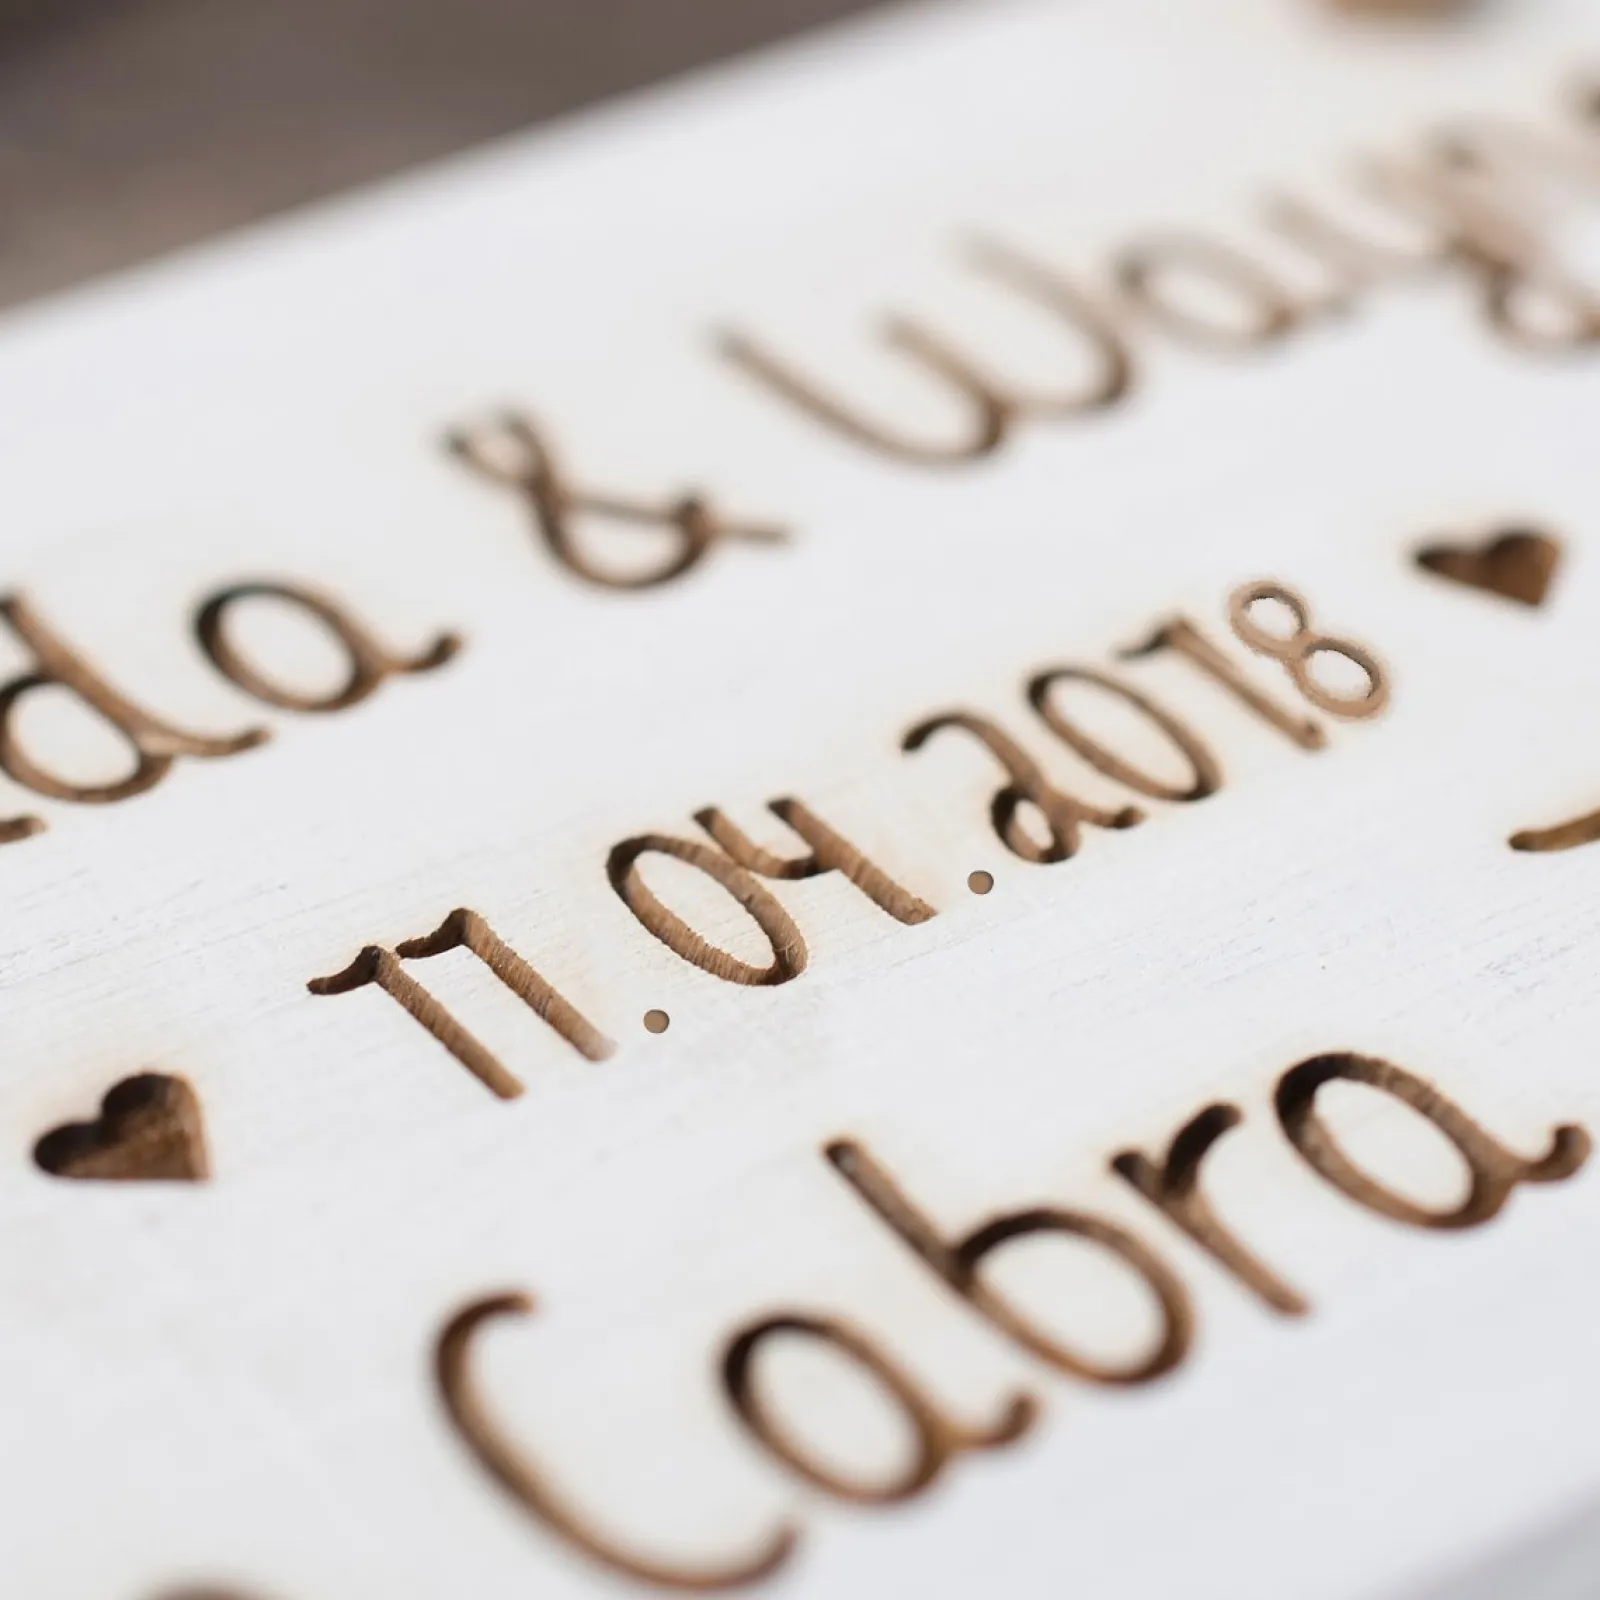 da & Wayn
11.04.2018
Cabra